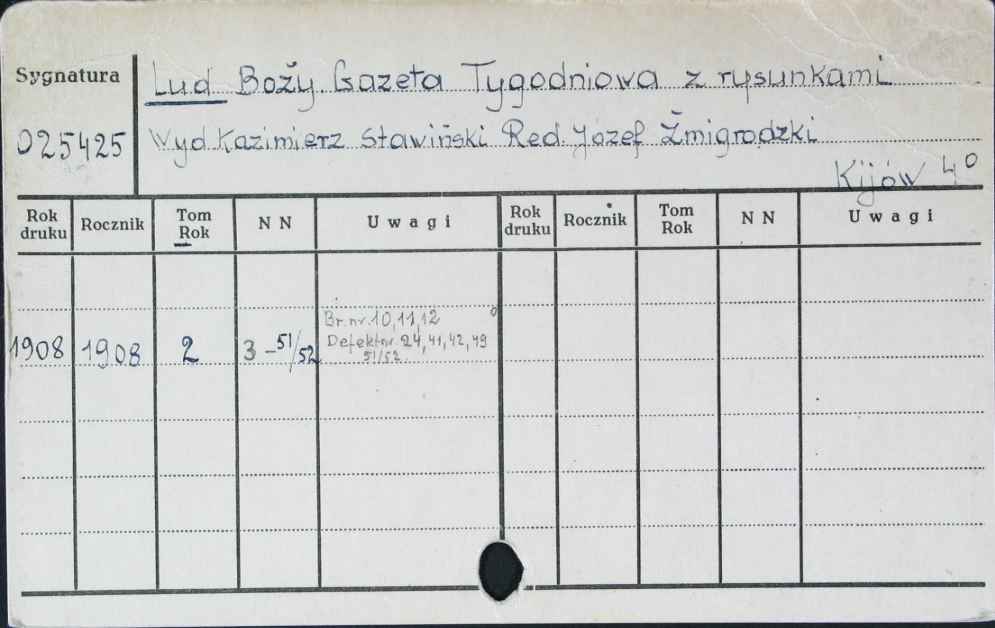 Sygnatura
Lud Boży. Gazeta Tygodniowa z rysunkami
025425
Wyd Kazimierz Stawiński Red. Józef Żmigrodzki
Kijów 4°
Rok druku Rocznik Tom Rok N N Uwagi Rok druku Rocznik Tom Rok N N Uwagi
Br. nr. 10, 11, 12
1908 1908 2 3 - 51/52 Defekt nr. 24, 41, 42, 49
51/52